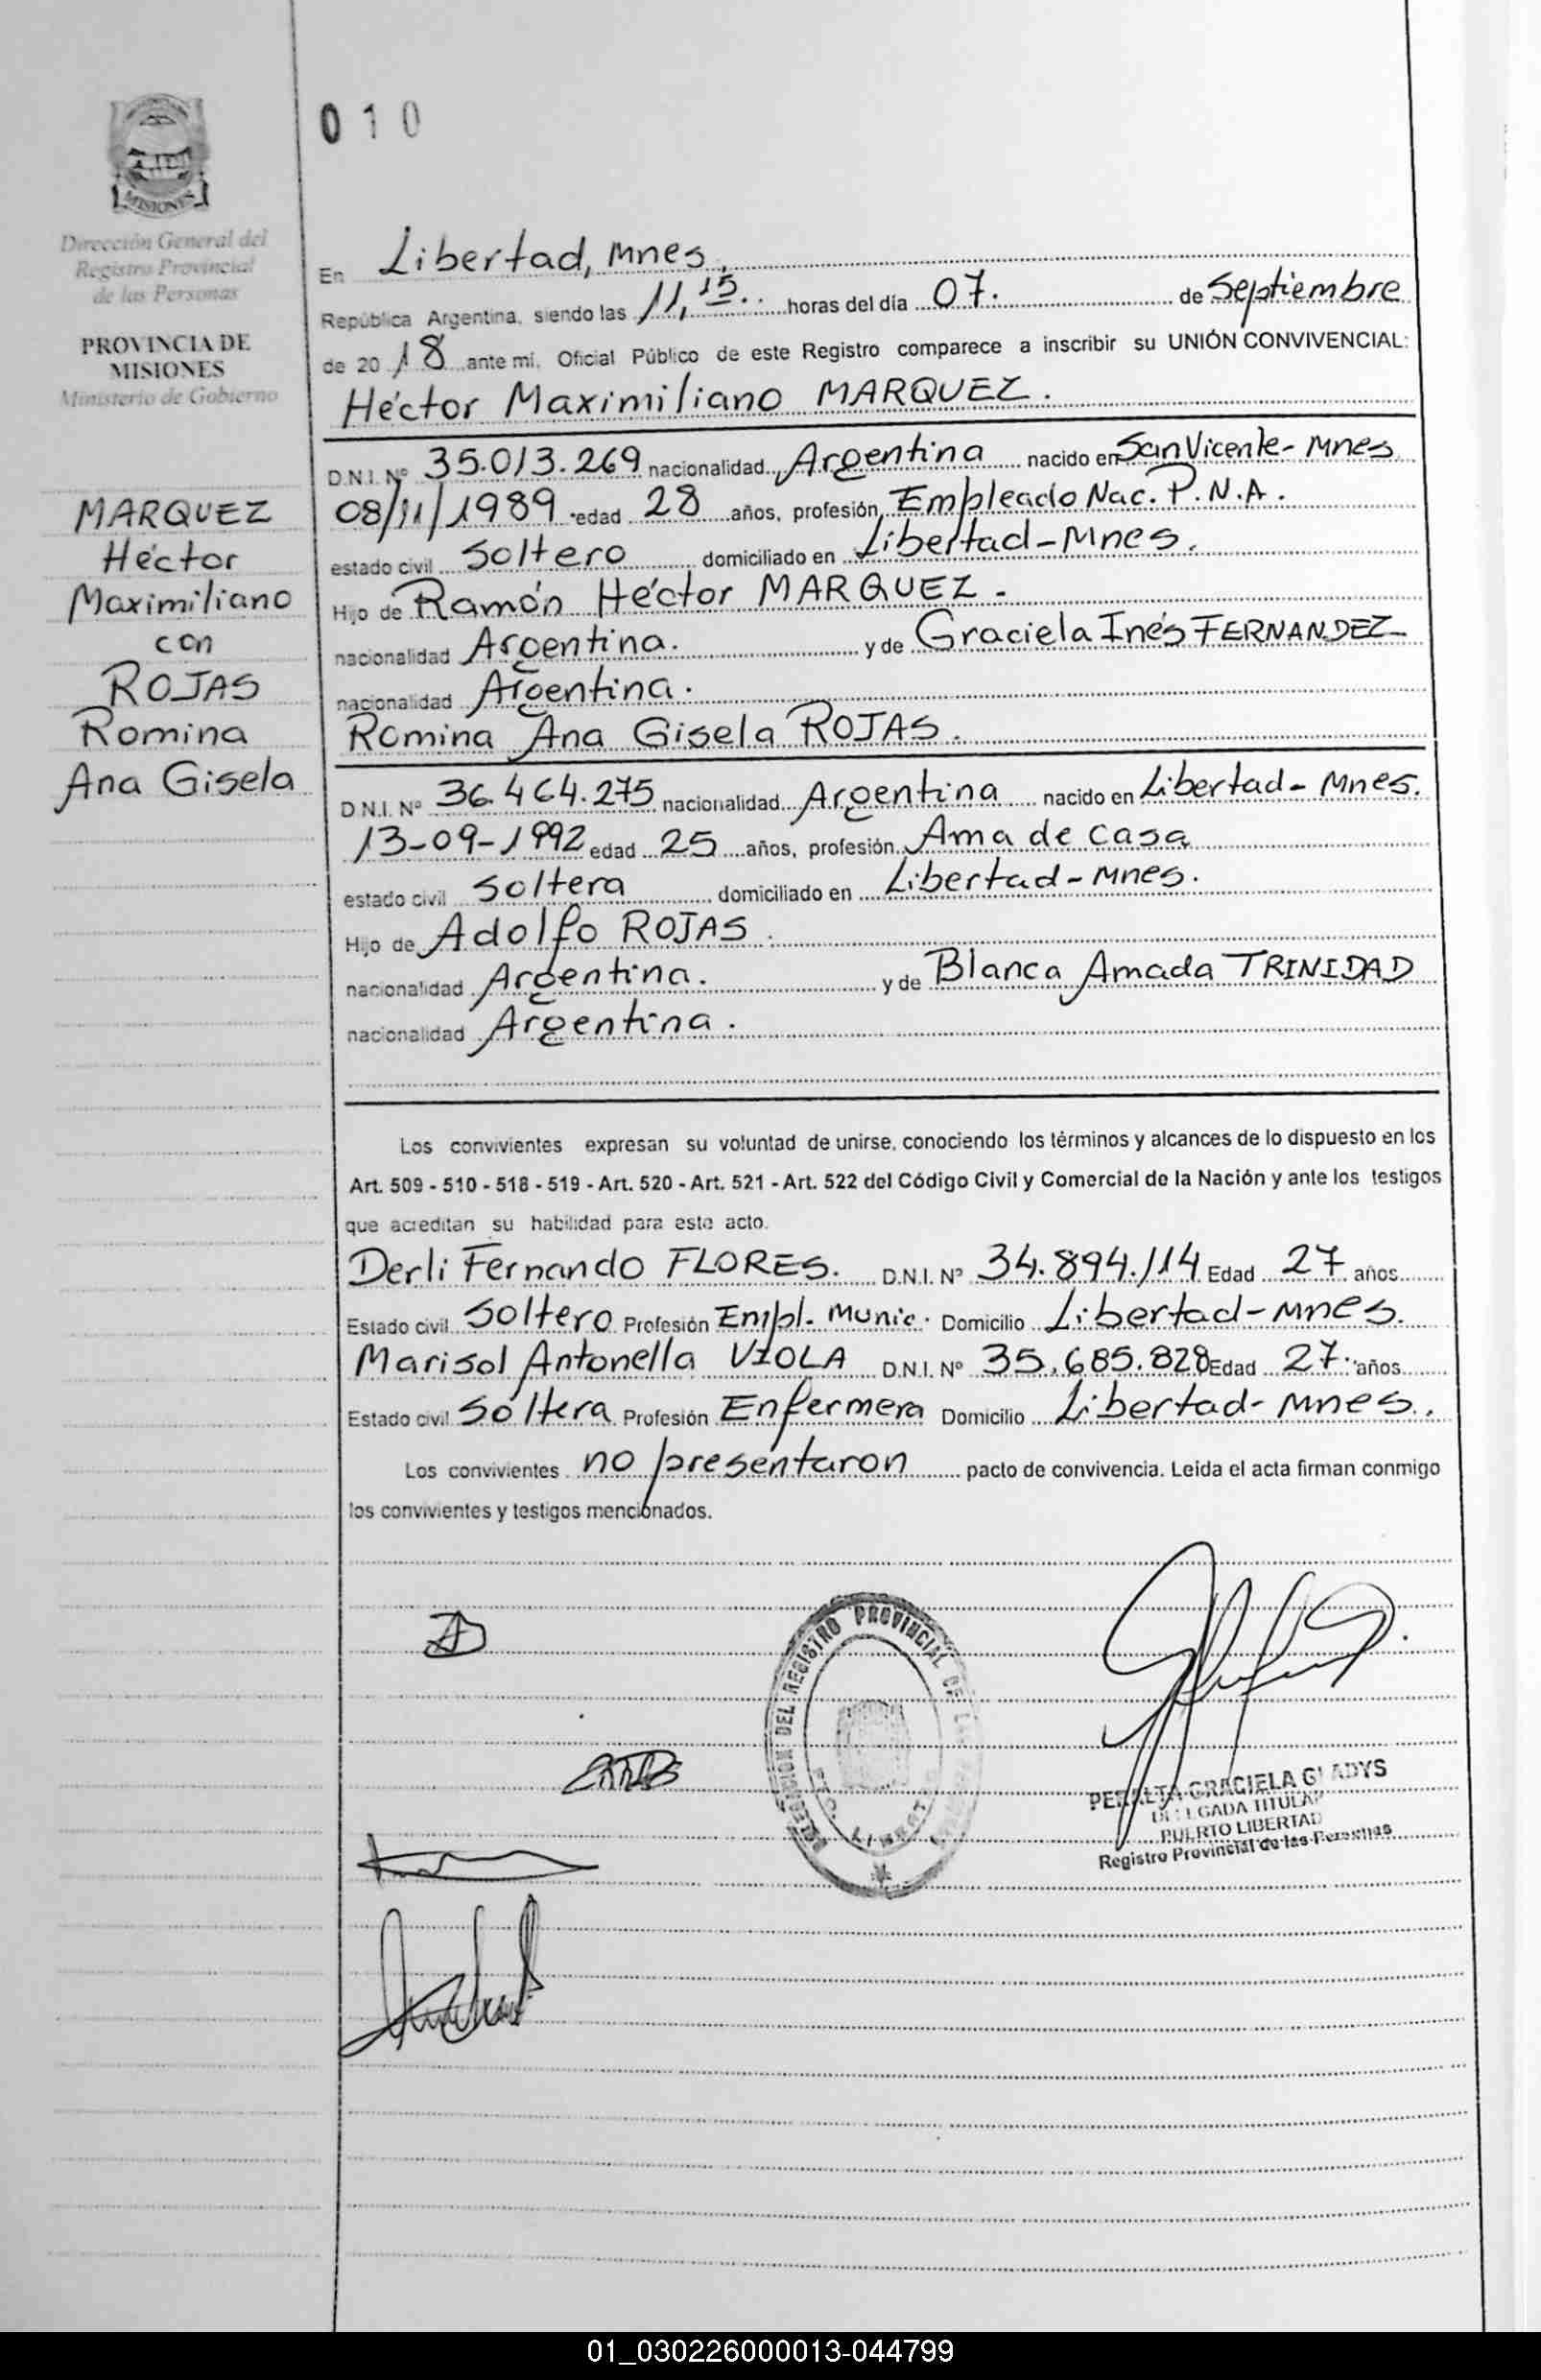 010
MISIONES
Dirección General del
Registro Provincial
de las Personas
PROVINCIA DE
MISIONES
Ministerio de Gobierno
MARQUEZ
Héctor
Maximiliano
con
ROJAS
Romina
Ana Gisela
En Libertad, Mnes,
República Argentina, siendo las 11,15.. horas del día 07. de Septiembre
de 2018 ante mí, Oficial Público de este Registro comparece a inscribir su UNIÓN CONVIVENCIAL:
Héctor Maximiliano MARQUEZ.
D.N.I. Nº 35.013.269 nacionalidad Argentina nacido en San Vicente - Mnes
08/11/1989 edad 28 años, profesión Empleado Nac. P.N.A.
estado civil Soltero domiciliado en Libertad-Mnes.
Hijo de Ramón Héctor MARQUEZ -
nacionalidad Argentina. y de Graciela Inés FERNANDEZ
nacionalidad Argentina.
Romina Ana Gisela ROJAS.
D.N.I. Nº 36.464.275 nacionalidad Argentina nacido en Libertad - Mnes.
13-09-1992 edad 25 años, profesión Ama de casa
estado civil Soltera domiciliado en Libertad - Mnes.
Hijo de Adolfo ROJAS.
nacionalidad Argentina. y de Blanca Amada TRINIDAD
nacionalidad Argentina.
Los convivientes expresan su voluntad de unirse, conociendo los términos y alcances de lo dispuesto en los
Art. 509 - 510 - 518 - 519 - Art. 520 - Art. 521 - Art. 522 del Código Civil y Comercial de la Nación y ante los testigos
que acreditan su habilidad para este acto.
Derli Fernando FLORES. D.N.I. Nº 34.894.114 Edad 27 años
Estado civil Soltero Profesión Empl. Munic. Domicilio Libertad - Mnes.
Marisol Antonella VIOLA D.N.I. Nº 35.685.828 Edad 27 años
Estado civil Soltera Profesión Enfermera Domicilio Libertad - Mnes.
Los convivientes no presentaron pacto de convivencia. Leida el acta firman conmigo
los convivientes y testigos mencionados.
DIRECCION DEL REGISTRO PROVINCIAL DE LAS
PERALTA GRACIELA GLADYS
DELEGADA TITULAR
PUERTO LIBERTAD
Registro Provincial de las Personas
01_030226000013-044799